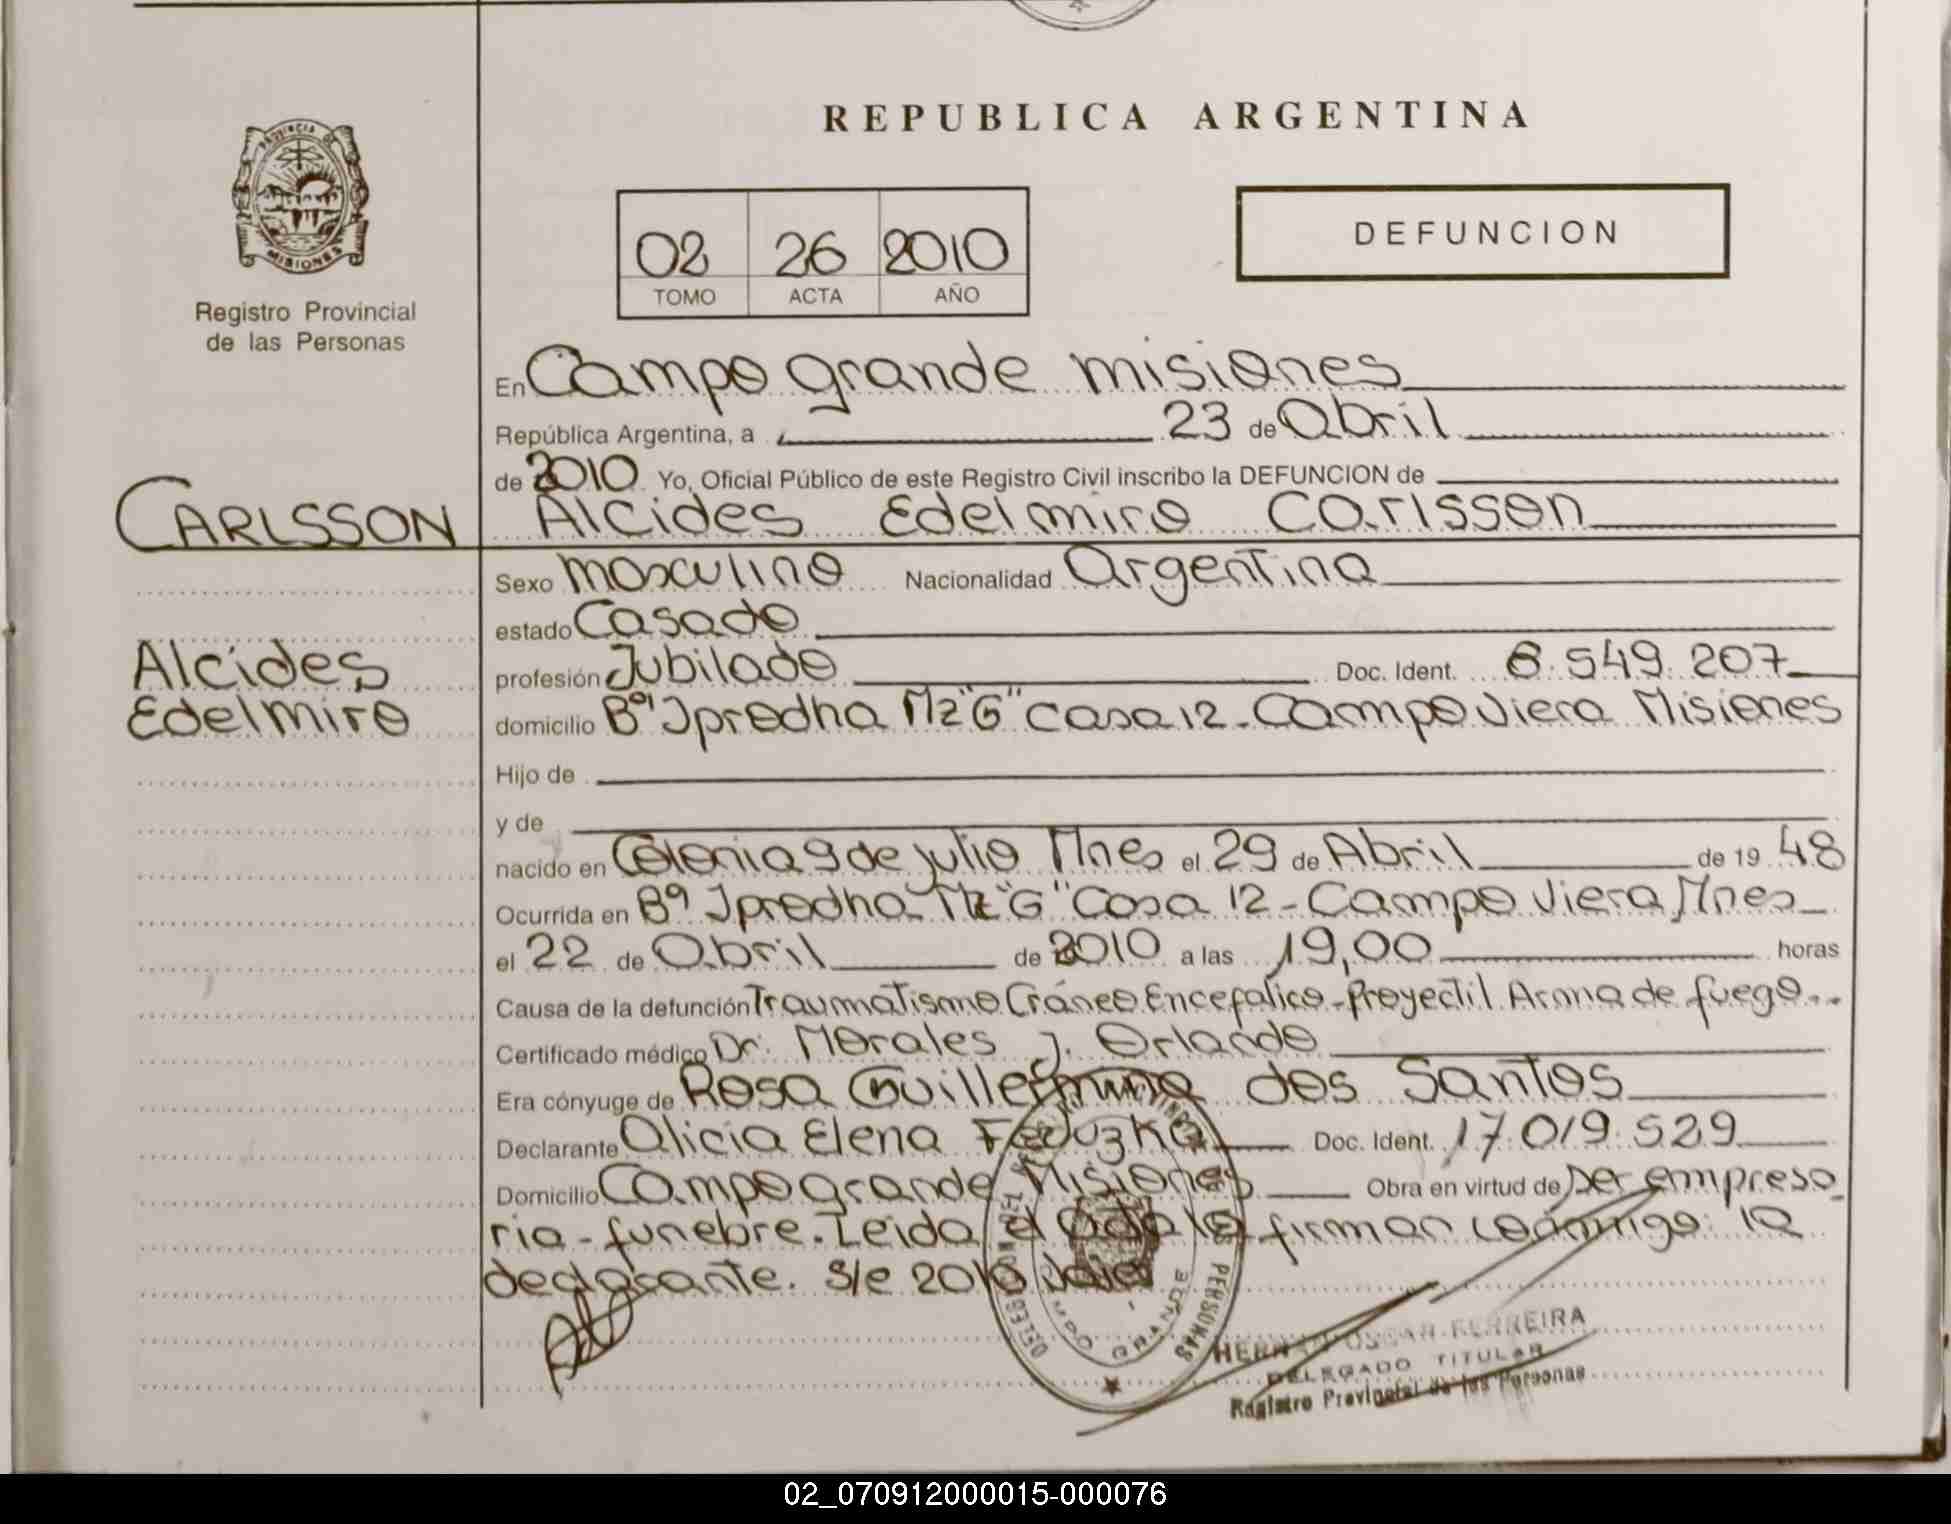 REPUBLICA ARGENTINA
PROVINCIA DE
MISIONES
Registro Provincial
de las Personas
02 26 2010
TOMO ACTA AÑO
DEFUNCION
En Campo grande misiones
República Argentina, a 23 de Abril
de 2010 Yo, Oficial Público de este Registro Civil inscribo la DEFUNCION de
CARLSSON
Alcides Edelmiro Carlsson
Sexo masculino Nacionalidad Argentina
estado Casado
Alcides
Edelmiro
profesión Jubilado Doc. Ident. 8.549.207
domicilio Bº Iprodha Mz "G" casa 12 - Campo Viera Misiones
Hijo de
y de
nacido en Colonia 9 de julio Mnes el 29 de Abril de 19 48
Ocurrida en Bº Iprodha Mz "G" Casa 12 - Campo Viera Mnes
el 22 de Abril de 2010 a las 19,00 horas
Causa de la defunción Traumatismo Cráneo Encefalico - Proyectil Arma de fuego
Certificado médico Dr. Morales J. Orlando
Era cónyuge de Rosa Guillermina dos Santos
Declarante Alicia Elena Doc. Ident. 17.019.529
Domicilio Campo grande Misiones Obra en virtud de ser empresa
ria - funebre. Leida el firman conmigo: la
declarante. S/e 2010
CAMPO GRANDE
HERNAN OSCAR FERREIRA
DELEGADO TITULAR
Registro Provincial de las Personas
02_070912000015-000076